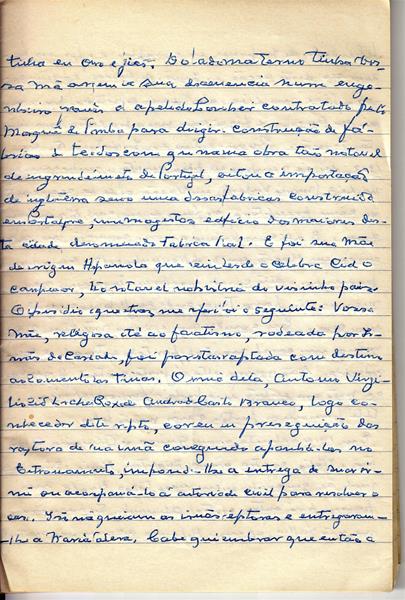 tinha eu dado materno tinha vos
sa mã origem e sua descendencia num enge
nheiro o apelido Larcher contratado pelo
Marquês de Pombal para dirigir construção de fá
bricas de tecidos com que numa obra tão notavel
de engrandecimento de Portugal, evitou a importação
de inglaterra sendo uma dessas fabricas construida
em Portalegre, num magestoso edificio dos maiores des
ta cidade denominado Fabrica Real. E foi sua Mãe
de origem Hspanola que vem desde o celebre Cid o
campeador, tão notavel na historia do visinho paiz.
O episodio que atraz me referi é o seguinte: Vossa
Mãe, religiosa até ao fanatismo, rodeada por Ir
mãs de Caridade, foi por estas raptada com destino
ao Convento das Trinas. O irmão dela, Antonio Virgi
lio Larcher Andrade Castelo Branco, logo co
nhecedor deste rapto, correu em perseguição dos
raptores de sua irmã conseguindo apanhal-os no
Entroncamento, impondo-lhe a entrega de sua ir
mã ou acompanhal-o á autoridade civil para resolver o
caso. Irmã as irmãs raptoras e entregaram-
-lhe a Maria. Cabe aqui lembrar que então a